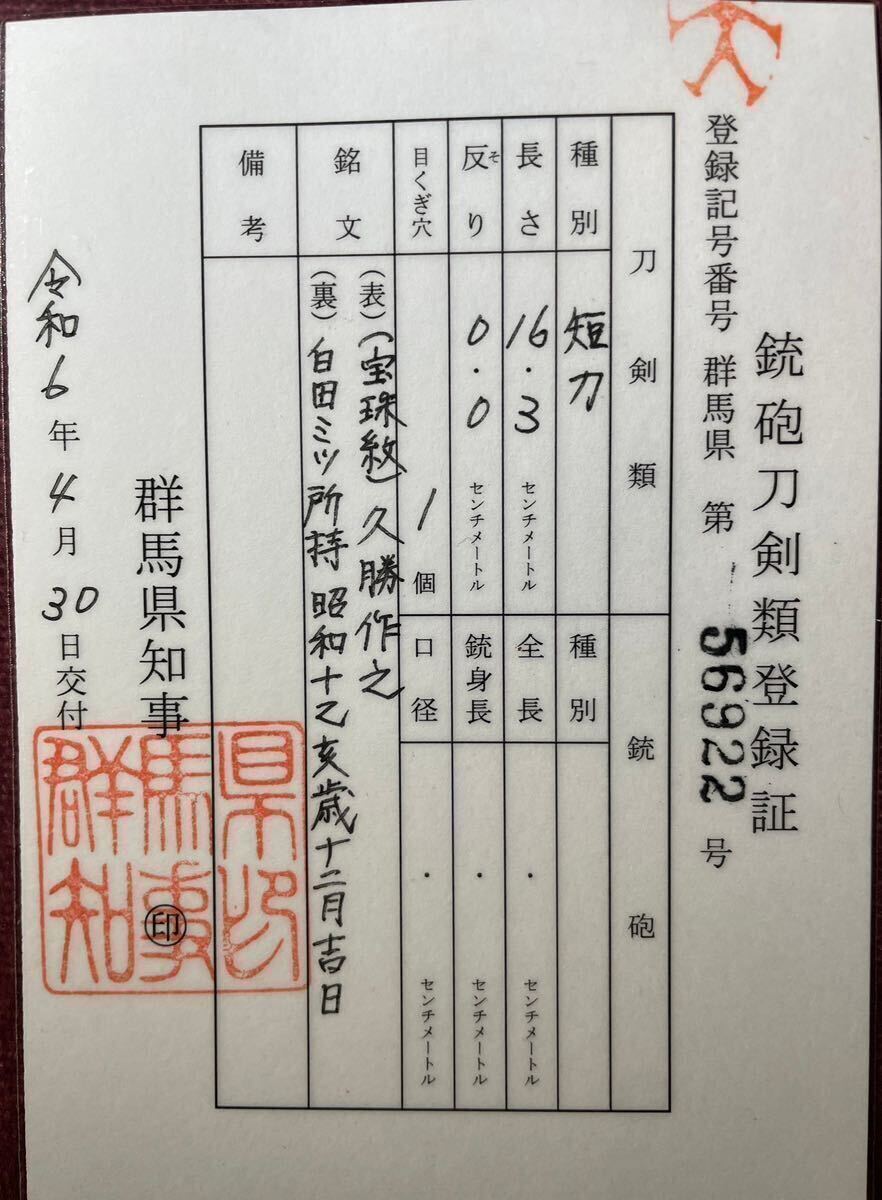 銃砲刀剣類登録証
登録記号番号 群馬県 第 56922 号
刀剣類 銃砲
種別 短刀 種別
長さ 16.3 センチメートル 全長 ・ センチメートル
反り 0.0 センチメートル 銃身長 ・ センチメートル
そ
目くぎ穴 1 個 口径 ・ センチメートル
銘文 (表)(宝珠紋)久勝作之
(裏)白田ミツ所持 昭和十乙亥歳十二月吉日
備考
群馬県知事 印
令和6年4月30日交付
群馬県知事印